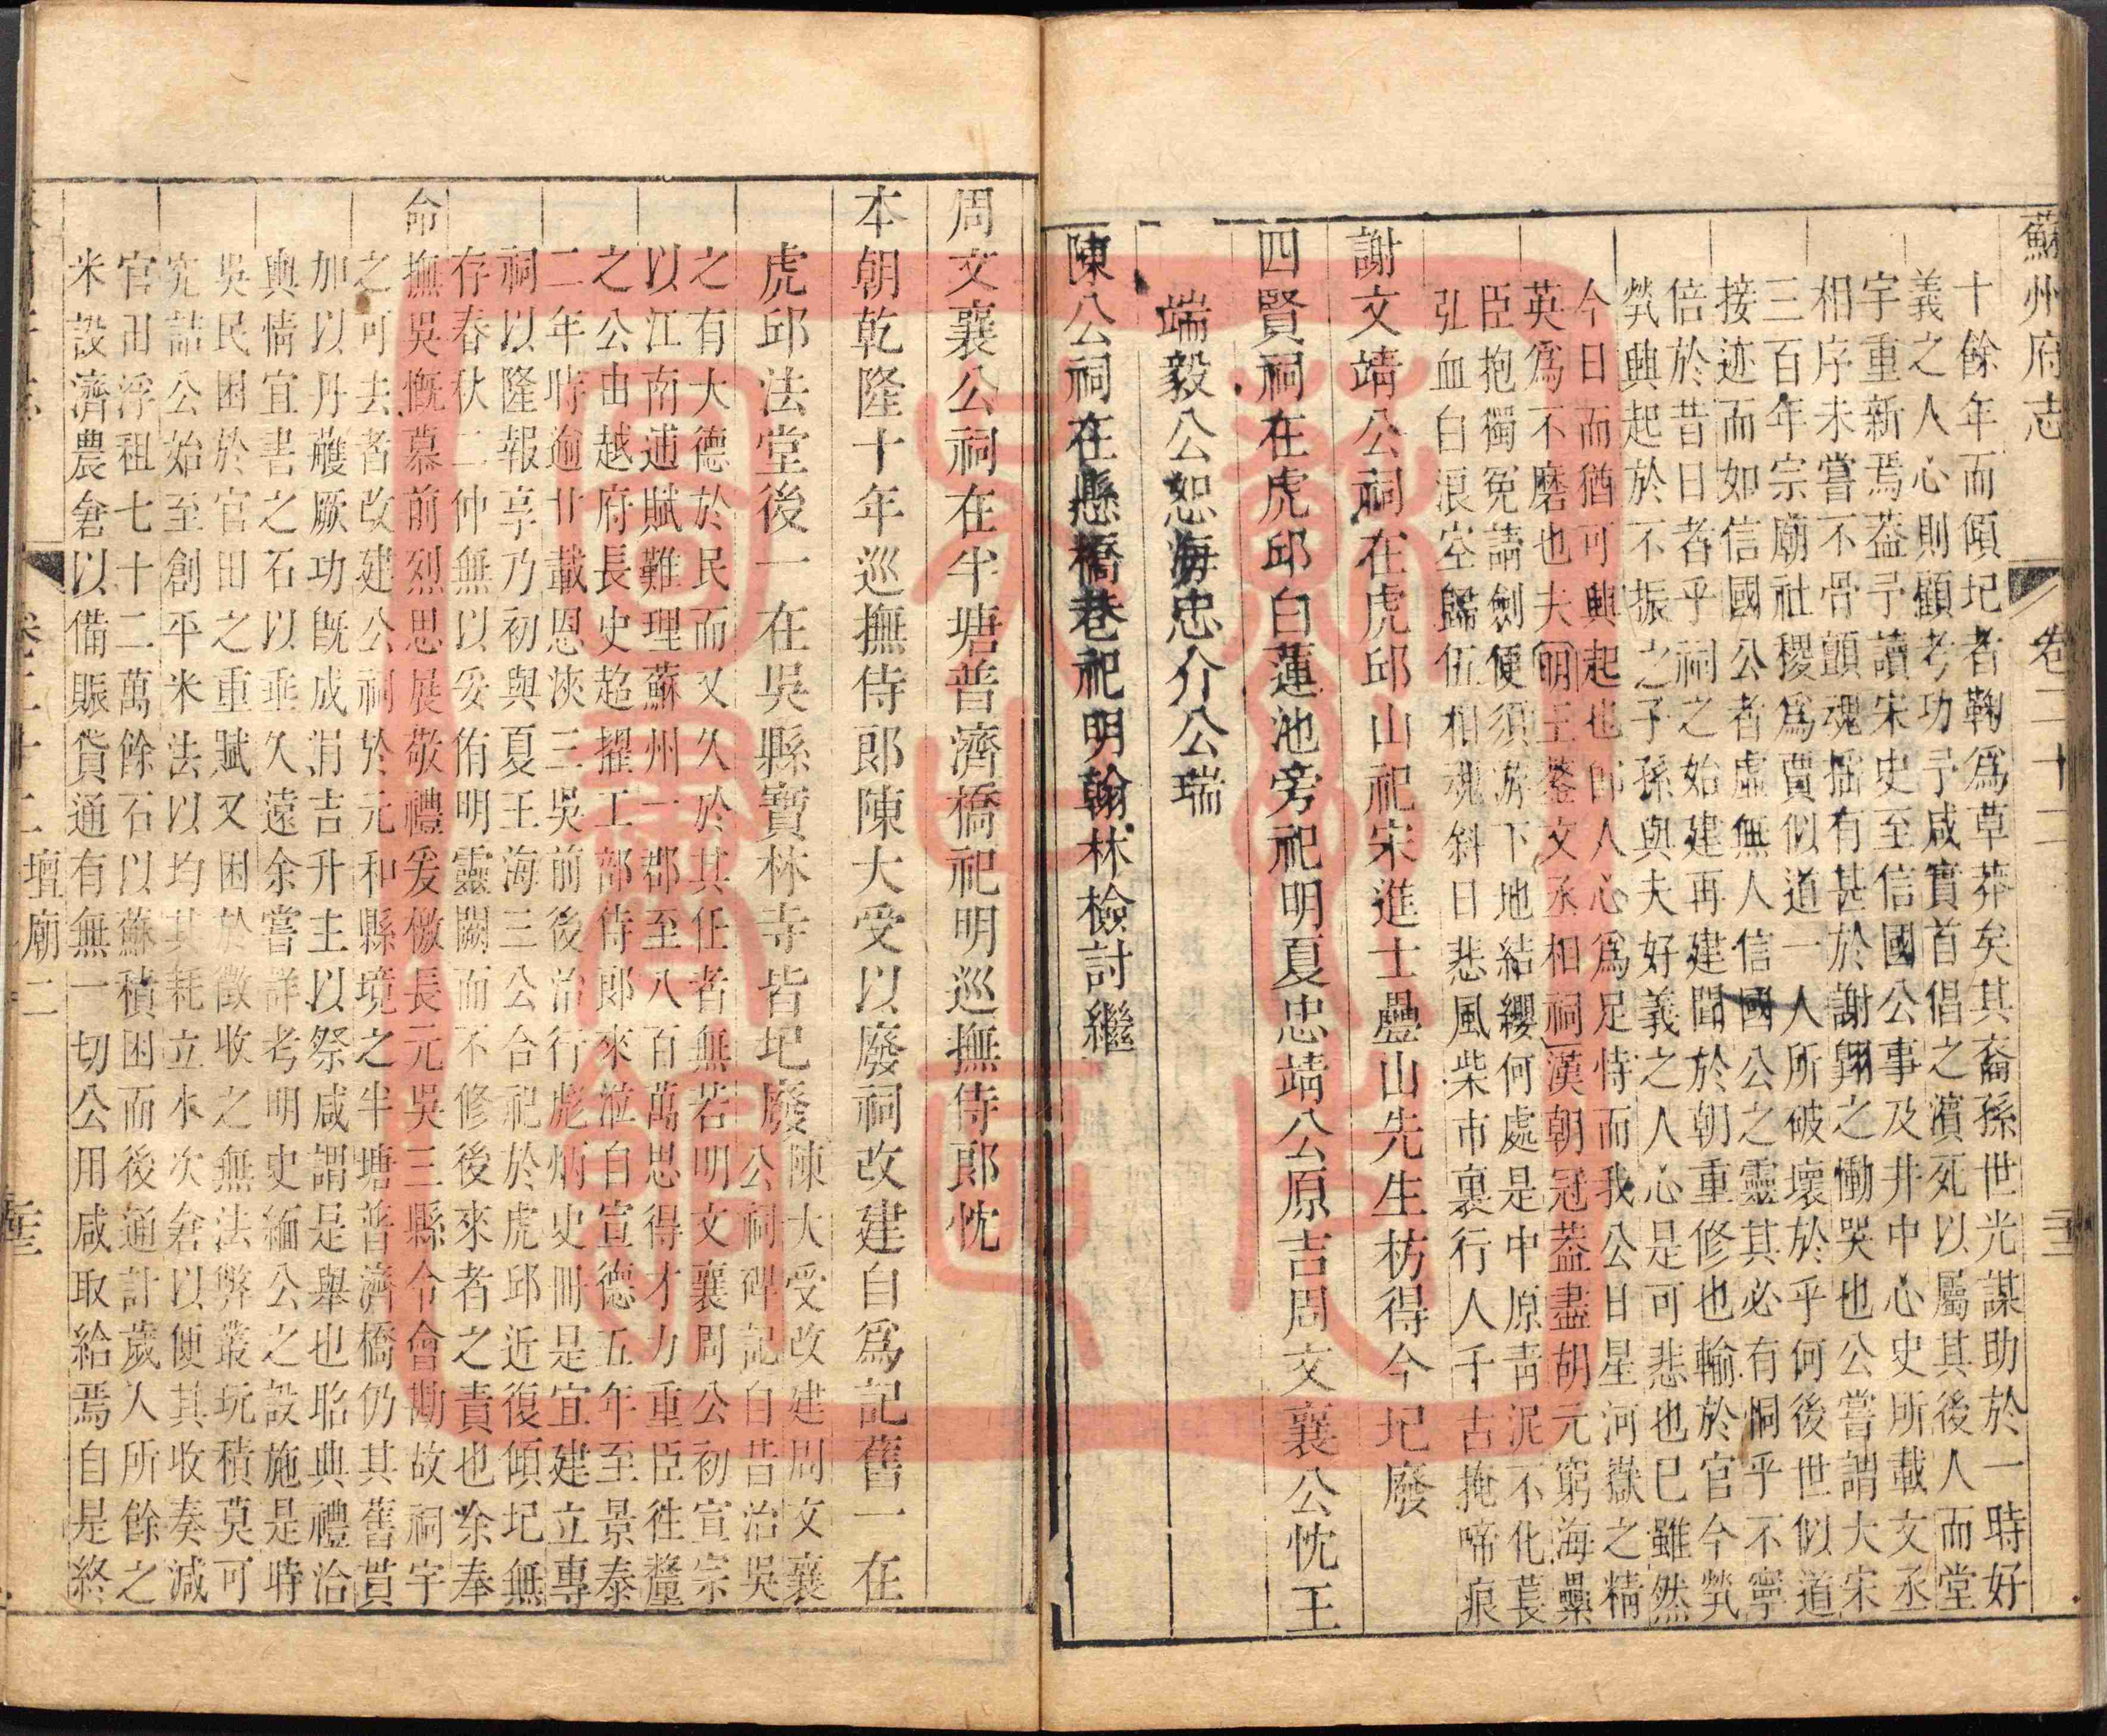 蘇州府志 卷二十二
十餘年而傾圮者鞠爲草莽矣其裔孫世光謀助於一時好
義之人心則顧考功予咸實首倡之濱死以屬其後人而堂
宇重新焉葢予讀宋史至信國公事及井中心史所載文丞
相序未嘗不骨顫魂揺有甚於謝翶之慟哭也公嘗謂大宋
三百年宗廟社稷爲賈似道一人所破壞於乎何後世似道
接迹而如信國公者虛無人信國公之靈其必有恫乎不寧
倍於昔日者乎祠之始建再建聞於朝重修也輸於官今煢
煢興起於不振之子孫與夫好義之人心是可悲也巳雖然
今日而猶可興起也卽人心爲足恃而我公日星河嶽之精
英爲不磨也夫 明王鏊文丞相祠 漢朝冠葢盡胡元窮海纍
臣抱獨冤請劍便須游下地結纓何處是中原靑泥不化萇
弘血白浪空歸伍相魂斜日悲風柴市裏行人千古掩啼痕
謝文靖公祠在虎邱山祀宋進士疊山先生枋得今圮廢
四賢祠在虎邱白蓮池旁祀明夏忠靖公原吉周文襄公忱王
端毅公恕海忠介公瑞
陳公祠在懸橋巷祀明翰林檢討繼
周文襄公祠在半塘普濟橋祀明巡撫侍郎忱
本朝乾隆十年巡撫侍郎陳大受以廢祠改建自爲記舊一在
虎邱法堂後一在吳縣寶林寺皆圮廢 陳大受改建周文襄
公祠碑記白昔治吳
之有大德於民而又久於其任者無若明文襄周公初宣宗
以江南逋賦難理蘇州一郡至八百萬思得才力重臣徃釐
之公由越府長史超擢工部侍郎來涖自宣德五年至景泰
二年時逾廿載恩浹三吳前後治行彪炳史冊是宜建立專
祠以隆報享乃初與夏王海三公合祀於虎邱近復傾圮無
存春秋二仲無以妥侑明靈闕而不修後來者之責也余奉
命撫吳慨慕前烈思展敬禮爰檄長元吳三縣令會勘故祠宇
之可去者改建公祠於元和縣境之半塘普濟橋仍其舊貫
加以丹雘厥功旣成涓吉升主以祭咸謂是舉也昭典禮洽
輿情宜書之石以垂久遠余嘗詳考明史緬公之設施是時
吳民困於官田之重賦又困於徵收之無法弊叢玩積莫可
究詰公始至創平米法以均其耗立水次倉以便其收奏減
官田浮租七十二萬餘石以蘇積困而後通計歲人所餘之
米設濟農倉以備賑貸通有無一切公用咸取給焉自是終
壇廟二